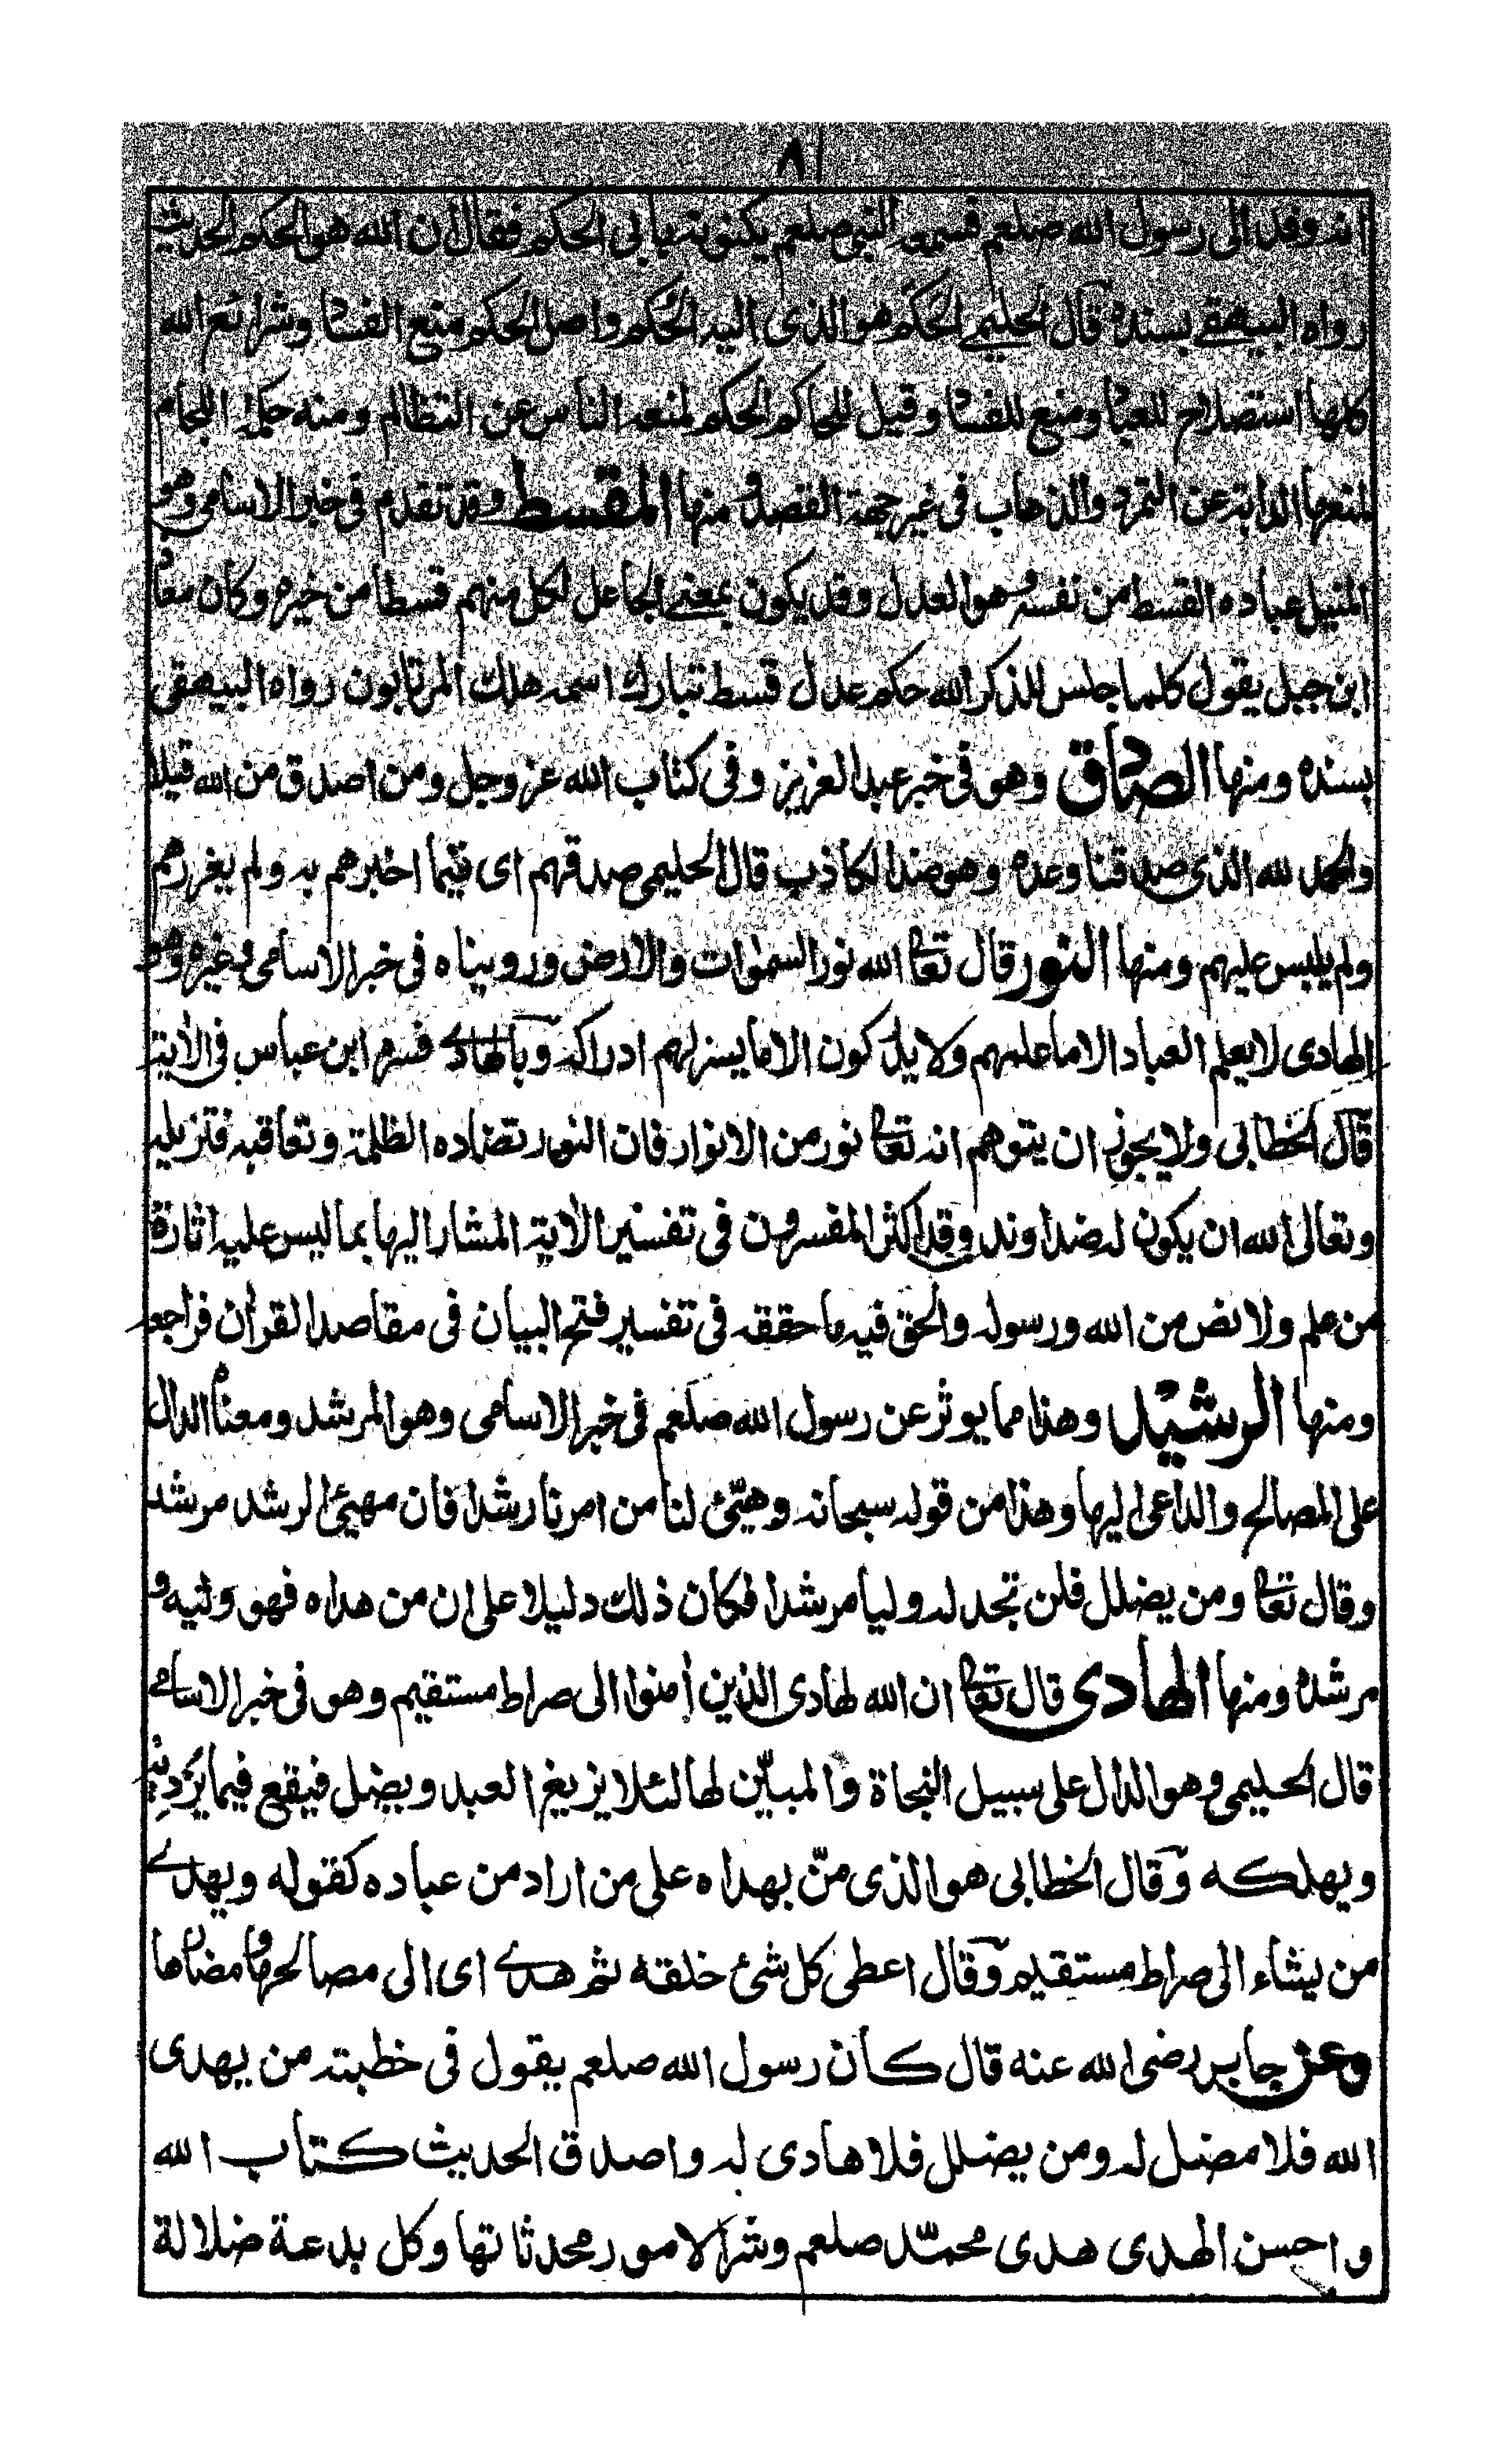 ٨١
انه وفد الى رسول الله صلعم فسمع النبي صلعم يكنونه بابي الحكم فقال ان الله هو الحكم الحديث
رواه البيهقے بسنده قال الحليمے الحكم هو الذى اليه الحكم واصل الحكم منع الفساد وشرائع الله
كلها استصلاح للعباد ومنع للفساد وقيل للحاكم الحكم لمنعه الناس عن التظالم ومنه حكمة اللجام
لمنعها الدابة عن التمرد والذهاب فى غير جهة القصد ومنها المقسط وقد تقدم فى خبر الاسامى وهو
المنيل عباده القسط من نفسه وهو العدل وقد يكون بمعنے الجاعل لكل منهم قسطا من خيره وكان معاذ
ابن جبل يقول كلما جلس للذكر الله حكم عدل قسط تبارك اسمه هلك المرتابون رواه البيهقى
بسنده ومنها الصادق وهو فى خبر عبد العزيز وفى كتاب الله عز وجل ومن اصدق من الله قيلا
والحمد لله الذى صدقنا وعده وهو ضد الكاذب قال الحليمى صدقهم اى فيما اخبرهم به ولم يغررهم
ولم يلبس عليهم ومنها النور قال تعا الله نور السموات والارض وروبيناه فى خبر الاسامى وغيره وهو
الهادى لا يعلم العباد الا ما علمهم ولا يدركون الا ما يسر لهم ادراكه وبالهادے فسره ابن عباس فى الأية
قال الخطابى ولا يجوز ان يتوهم انه تعا نور من الانوار فان النور تضاده الظلمة وتعاقبه فتزيله
وتعالى الله ان يكون له ضد او ند وقد اكثر المفسرون فى تفسير الأية المشار اليها بما ليس عليه اثارة
من علم ولا نص من الله ورسوله والحق فيه ما حققه فى تفسير فتح البيان فى مقاصد القرأن فراجعه
ومنها الرشيد وهذا مما يوثر عن رسول الله صلعم فى خبر الاسامى وهو المرشد ومعناه الدال
على المصالح والداعى اليها وهذا من قوله سبحانه وهيّئ لنا من امرنا رشدا فان مهيئ الرشد مرشد
وقال تعا ومن يضلل فلن تجد له وليا مرشدا فكان ذلك دليلا على ان من هداه فهو وليه و
مرشده ومنها الهادى قال تعا ان الله لهادى الذين أمنوا الى صراط مستقيم وهو فى خبر الاسامے
قال الحليمى وهو الدال على سبيل النجاة والمبيّن لها لئلا يزيغ العبد ويضل فيقع فيما يُرديه
ويهلكه وقال الخطابى هو الذى منّ بهداه على من اراد من عباده كقوله ويهدے
من يشاء الى صراط مستقيم وقال اعطى كل شئ خلقه ثم هدے اى الى مصالحها ومضارها
وعن جابر رضى الله عنه قال كان رسول الله صلعم يقول فى خطبته من يهدى
الله فلا مضل له ومن يضلل فلا هادى له واصدق الحديث كتاب الله
واحسن الهدى هدى محمّد صلعم وشر الامور محدثاتها وكل بدعة ضلالة